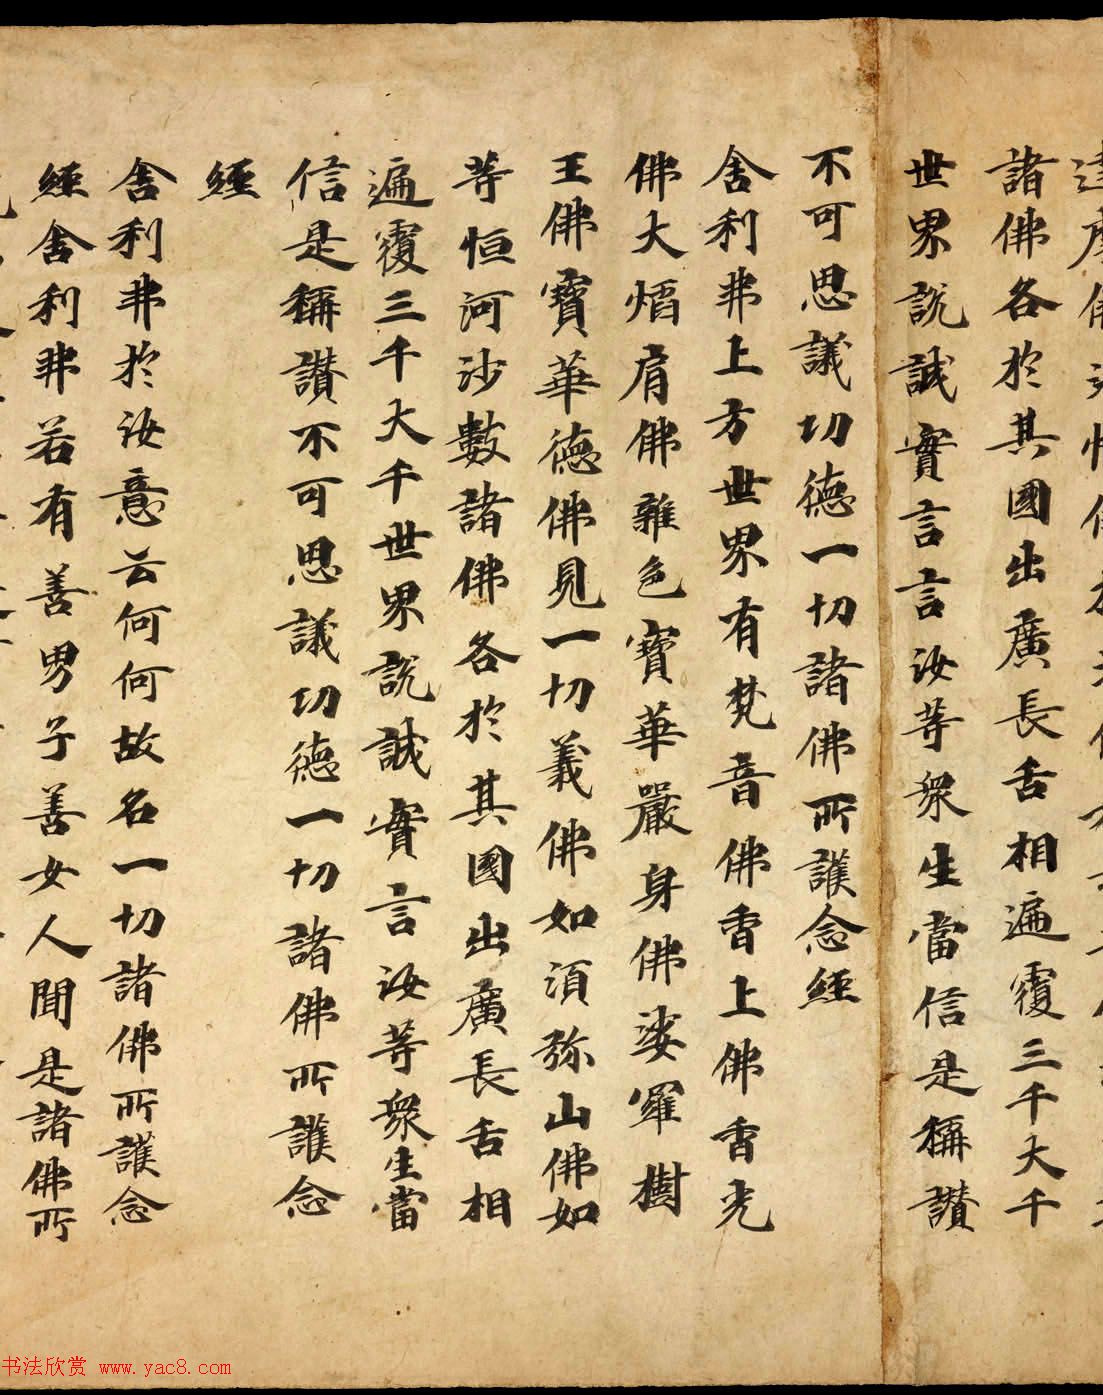 諸佛各於其國出廣長舌相遍覆三千大千
世界說誠實言言汝等衆生當信是稱讃
不可思議功德一切諸佛所護念經
舍利弗上方世界有梵音佛香上佛香光
佛大焰肩佛雜色寶華嚴身佛娑羅樹
王佛寶華德佛見一切義佛如須弥山佛如
等恒河沙數諸佛各於其國出廣長舌相
遍覆三千大千世界說誠實言汝等衆生當
信是稱讃不可思議功德一切諸佛所護念
經
舍利弗於汝意云何何故名一切諸佛所護念
經舍利弗若有善男子善女人聞是諸佛所
书法欣赏 www.yac8.com